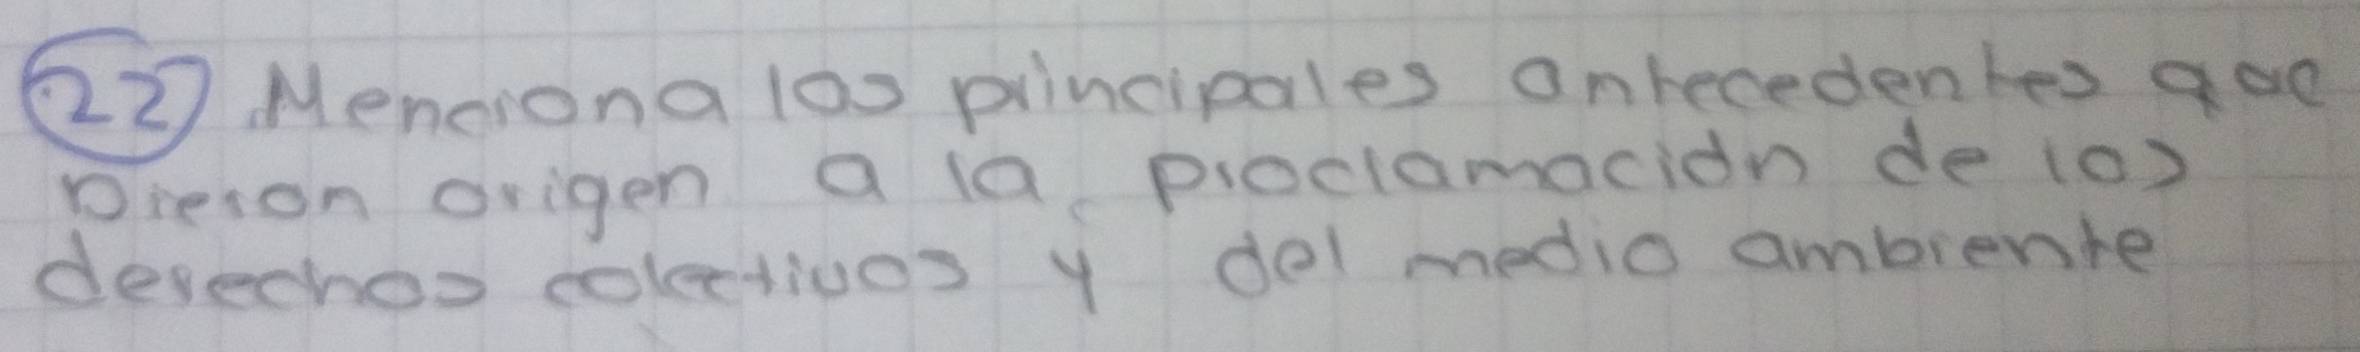 22 Menciona los principales antecedentes que
Dieron origen a la proclamación de los
derechos colectivos y del medio ambiente